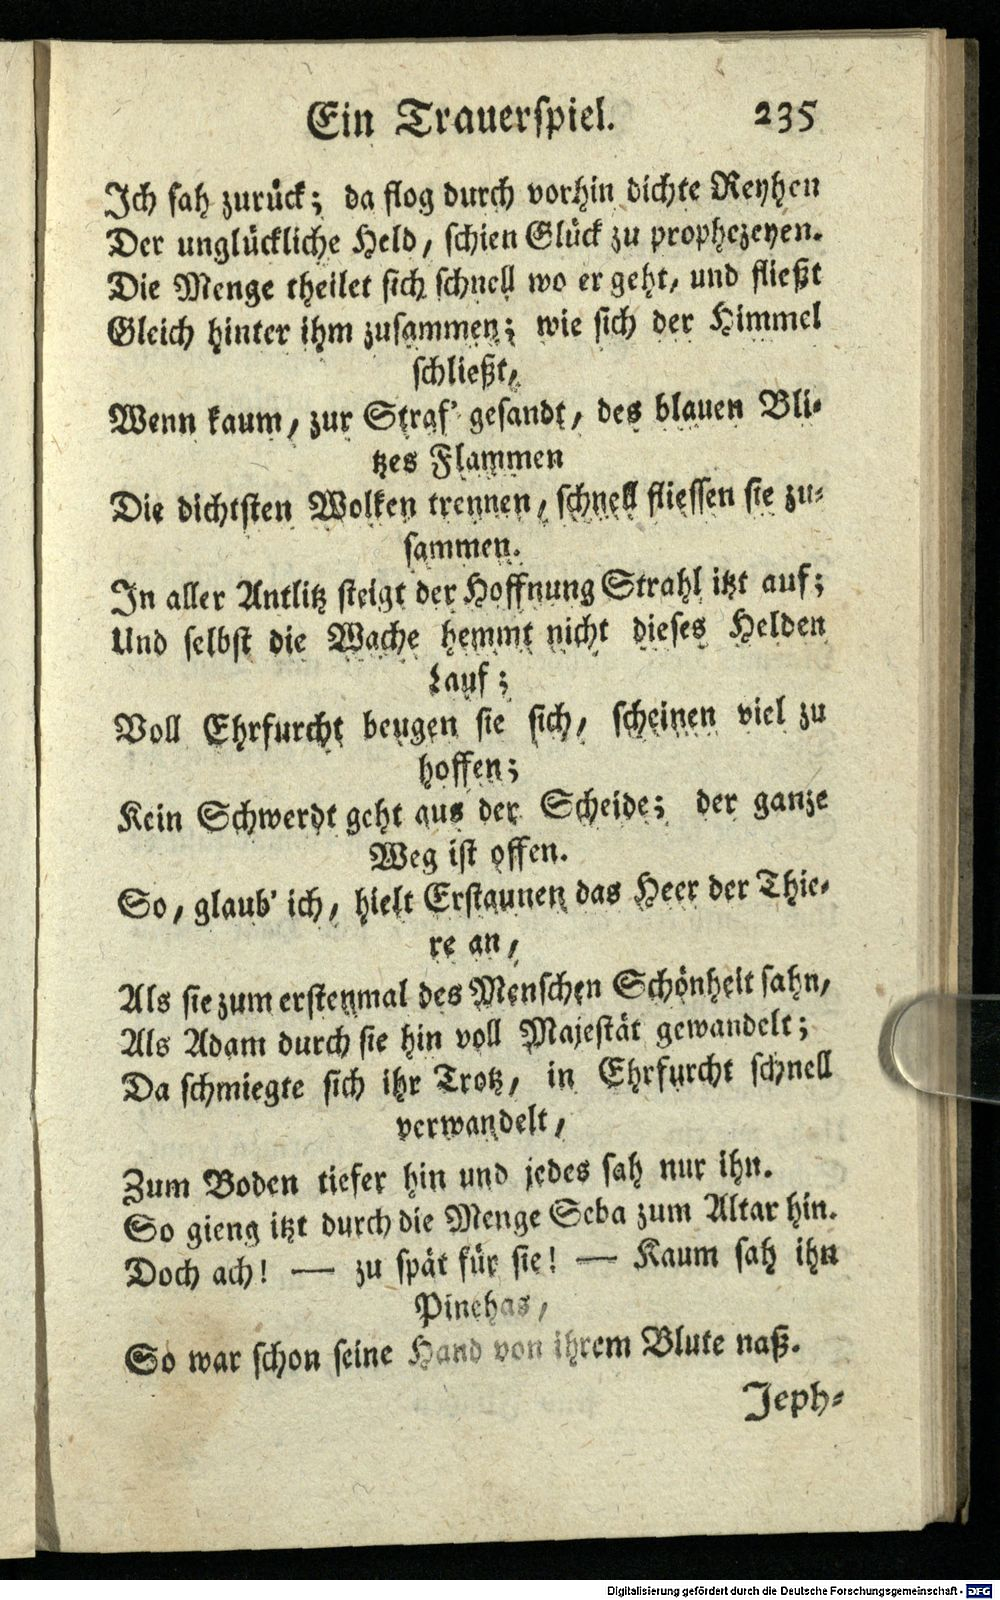 Ein Trauerspiel. 235
Ich sah zurück; da flog durch vorhin dichte Reyhen
Der unglückliche Held, schien Glück zu prophezeyen.
Die Menge theilet sich schnell wo er geht, und fließt
Gleich hinter ihm zusammen; wie sich der Himmel
schließt,
Wenn kaum, zur Straf' gesandt, des blauen Bli-
tzes Flammen
Die dichtsten Wolken trennen, schnell fliessen sie zu-
sammen.
In aller Antlitz steigt der Hoffnung Strahl itzt auf;
Und selbst die Wache hemmt nicht dieses Helden
Lauf;
Voll Ehrfurcht beugen sie sich, scheinen viel zu
hoffen;
Kein Schwerdt geht aus der Scheide; der ganze
Weg ist offen.
So, glaub' ich, hielt Erstaunen das Heer der Thie-
re an,
Als sie zum erstenmal des Menschen Schönheit sahn,
Als Adam durch sie hin voll Majestät gewandelt;
Da schmiegte sich ihr Trotz, in Ehrfurcht schnell
verwandelt,
Zum Boden tiefer hin und jedes sah nur ihn.
So gieng itzt durch die Menge Seba zum Altar hin.
Doch ach! — zu spät für sie! — Kaum sah ihn
Pinehas,
So war schon seine Hand von ihrem Blute naß.
Jeph-
Digitalisierung gefördert durch die Deutsche Forschungsgemeinschaft - DFG